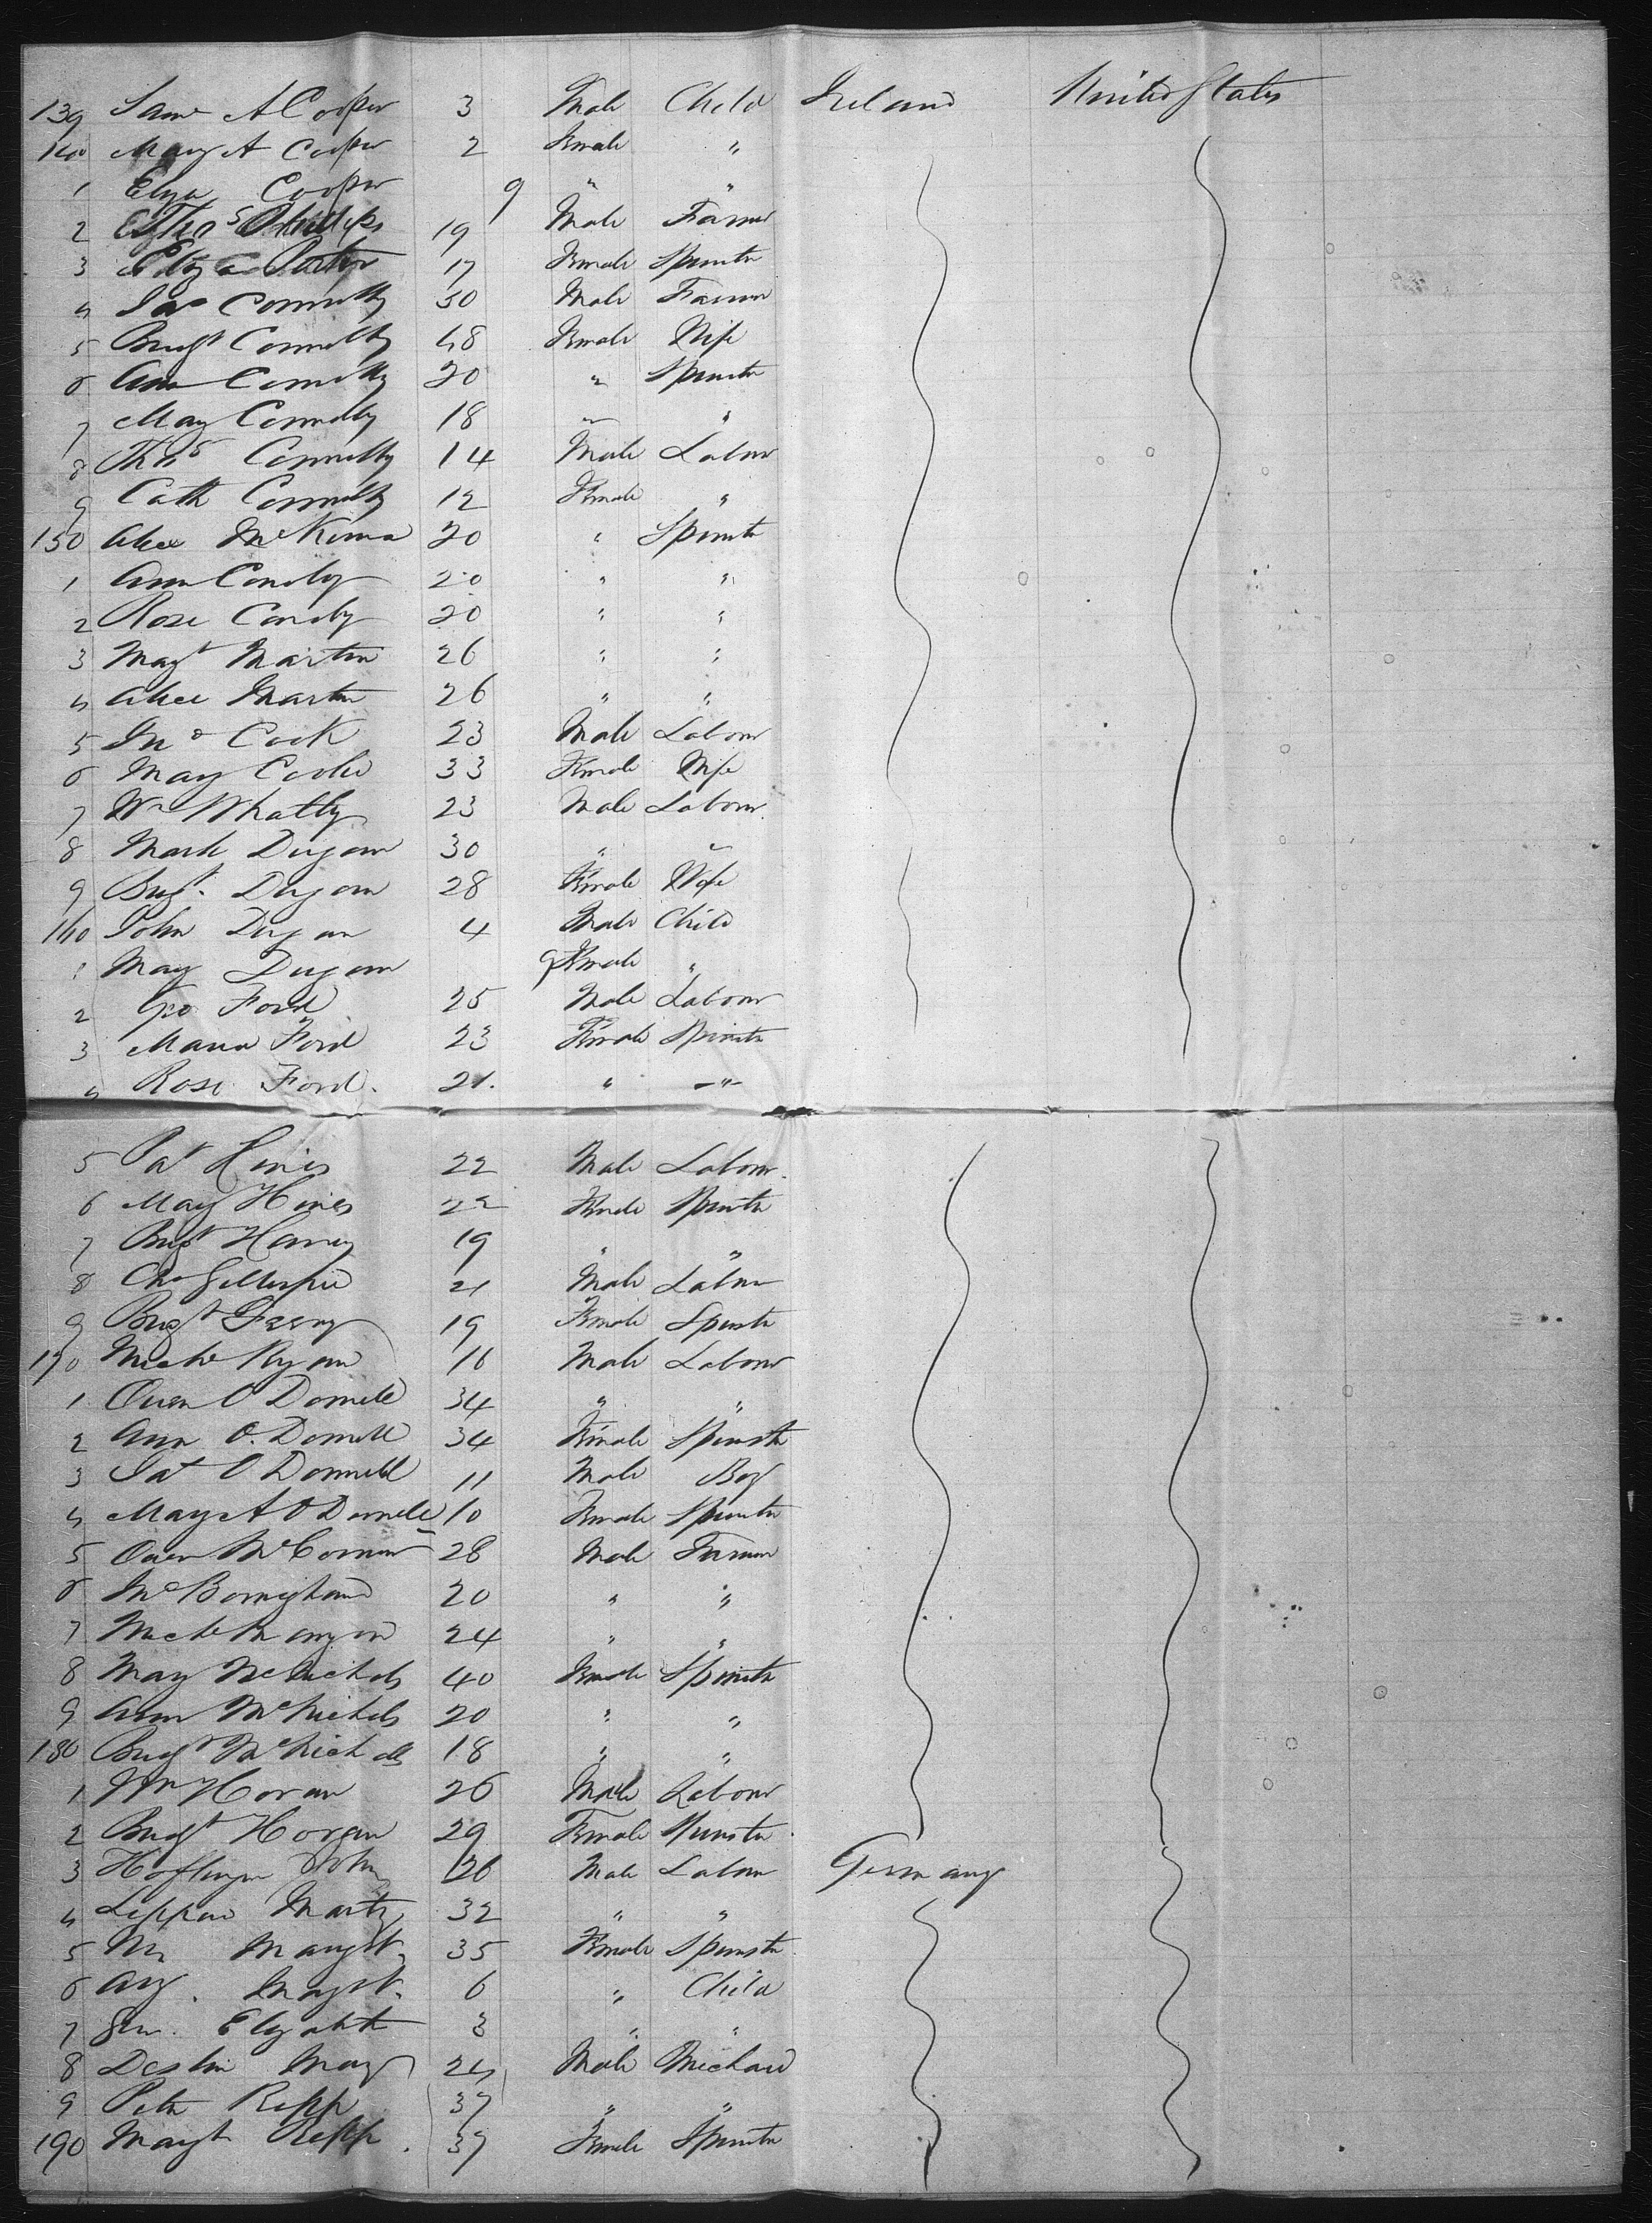 139 Saml A Cooper 3 Male Child Ireland United States
140 Mary A Cooper 2 Female "
1 Eliza Cooper 9 " "
2 Thos Phillips 19 Male Farmer
3 Eliza 17 Female Spinster
4 Jas Connolly 50 Male Farmer
5 Bridgt Connolly 48 Female Wife
6 Ann Connolly 20 " Spinster
7 Mary Connolly 18 " "
8 Thos Connolly 14 Male Labour
9 Cath Connolly 12 Female "
150 Alice McKenna 20 " Spinster
1 Ann Conoby 20 " "
2 Rose Conoby 20 " "
3 Magt Martin 26 " "
4 Alice Martin 26 " "
5 Jno Cook 23 Male Labour
6 Mary Cooke 33 Female Wife
7 Wm Whatly 23 Male Labour
8 Mark Dugan 30 " "
9 Bugt. Dugan 28 Female Wife
160 John Dugan 4 Male Child
1 Mary Dugan 9 Female "
2 Geo Ford 25 Male Labour
3 Maria Ford 23 Female Spinster
4 Rose Ford. 21. " "
5 Pat Hines 22 Male Labour.
6 Mary Hines 22 Female Spinster
7 Bugt Harvey 19 " "
8 Chs Gillespie 21 Male Labour
9 Bugt 19 Female Spinster
170 Michl Ryan 16 Male Labour
1 Owen O Donnell 34 " "
2 Ann O. Donnell 34 Female Spinster
3 Pat O Donnell 11 Male Boy
4 Mary A O Donnell 10 Female Spinster
5 Owen 28 Male Farmer
6 20 " "
7 Michl 24 " "
8 Mary McNichols 40 Female Spinster
9 Ann McNichols 20 " "
180 Bugt McNicholls 18 " "
1 Wm Horan 26 Male Labour
2 Bugt Horan 29 Female Spinster
3 John 26 Male Labour Germany
4 Martz 32 " "
5 Margt. 35 Female Spinster
6 . Magrt. 6 " Child
7 Elizabth 3 " "
8 24 Male
9 Peter Repp 37 " "
190 Margt Repp. 37 Female Spinster